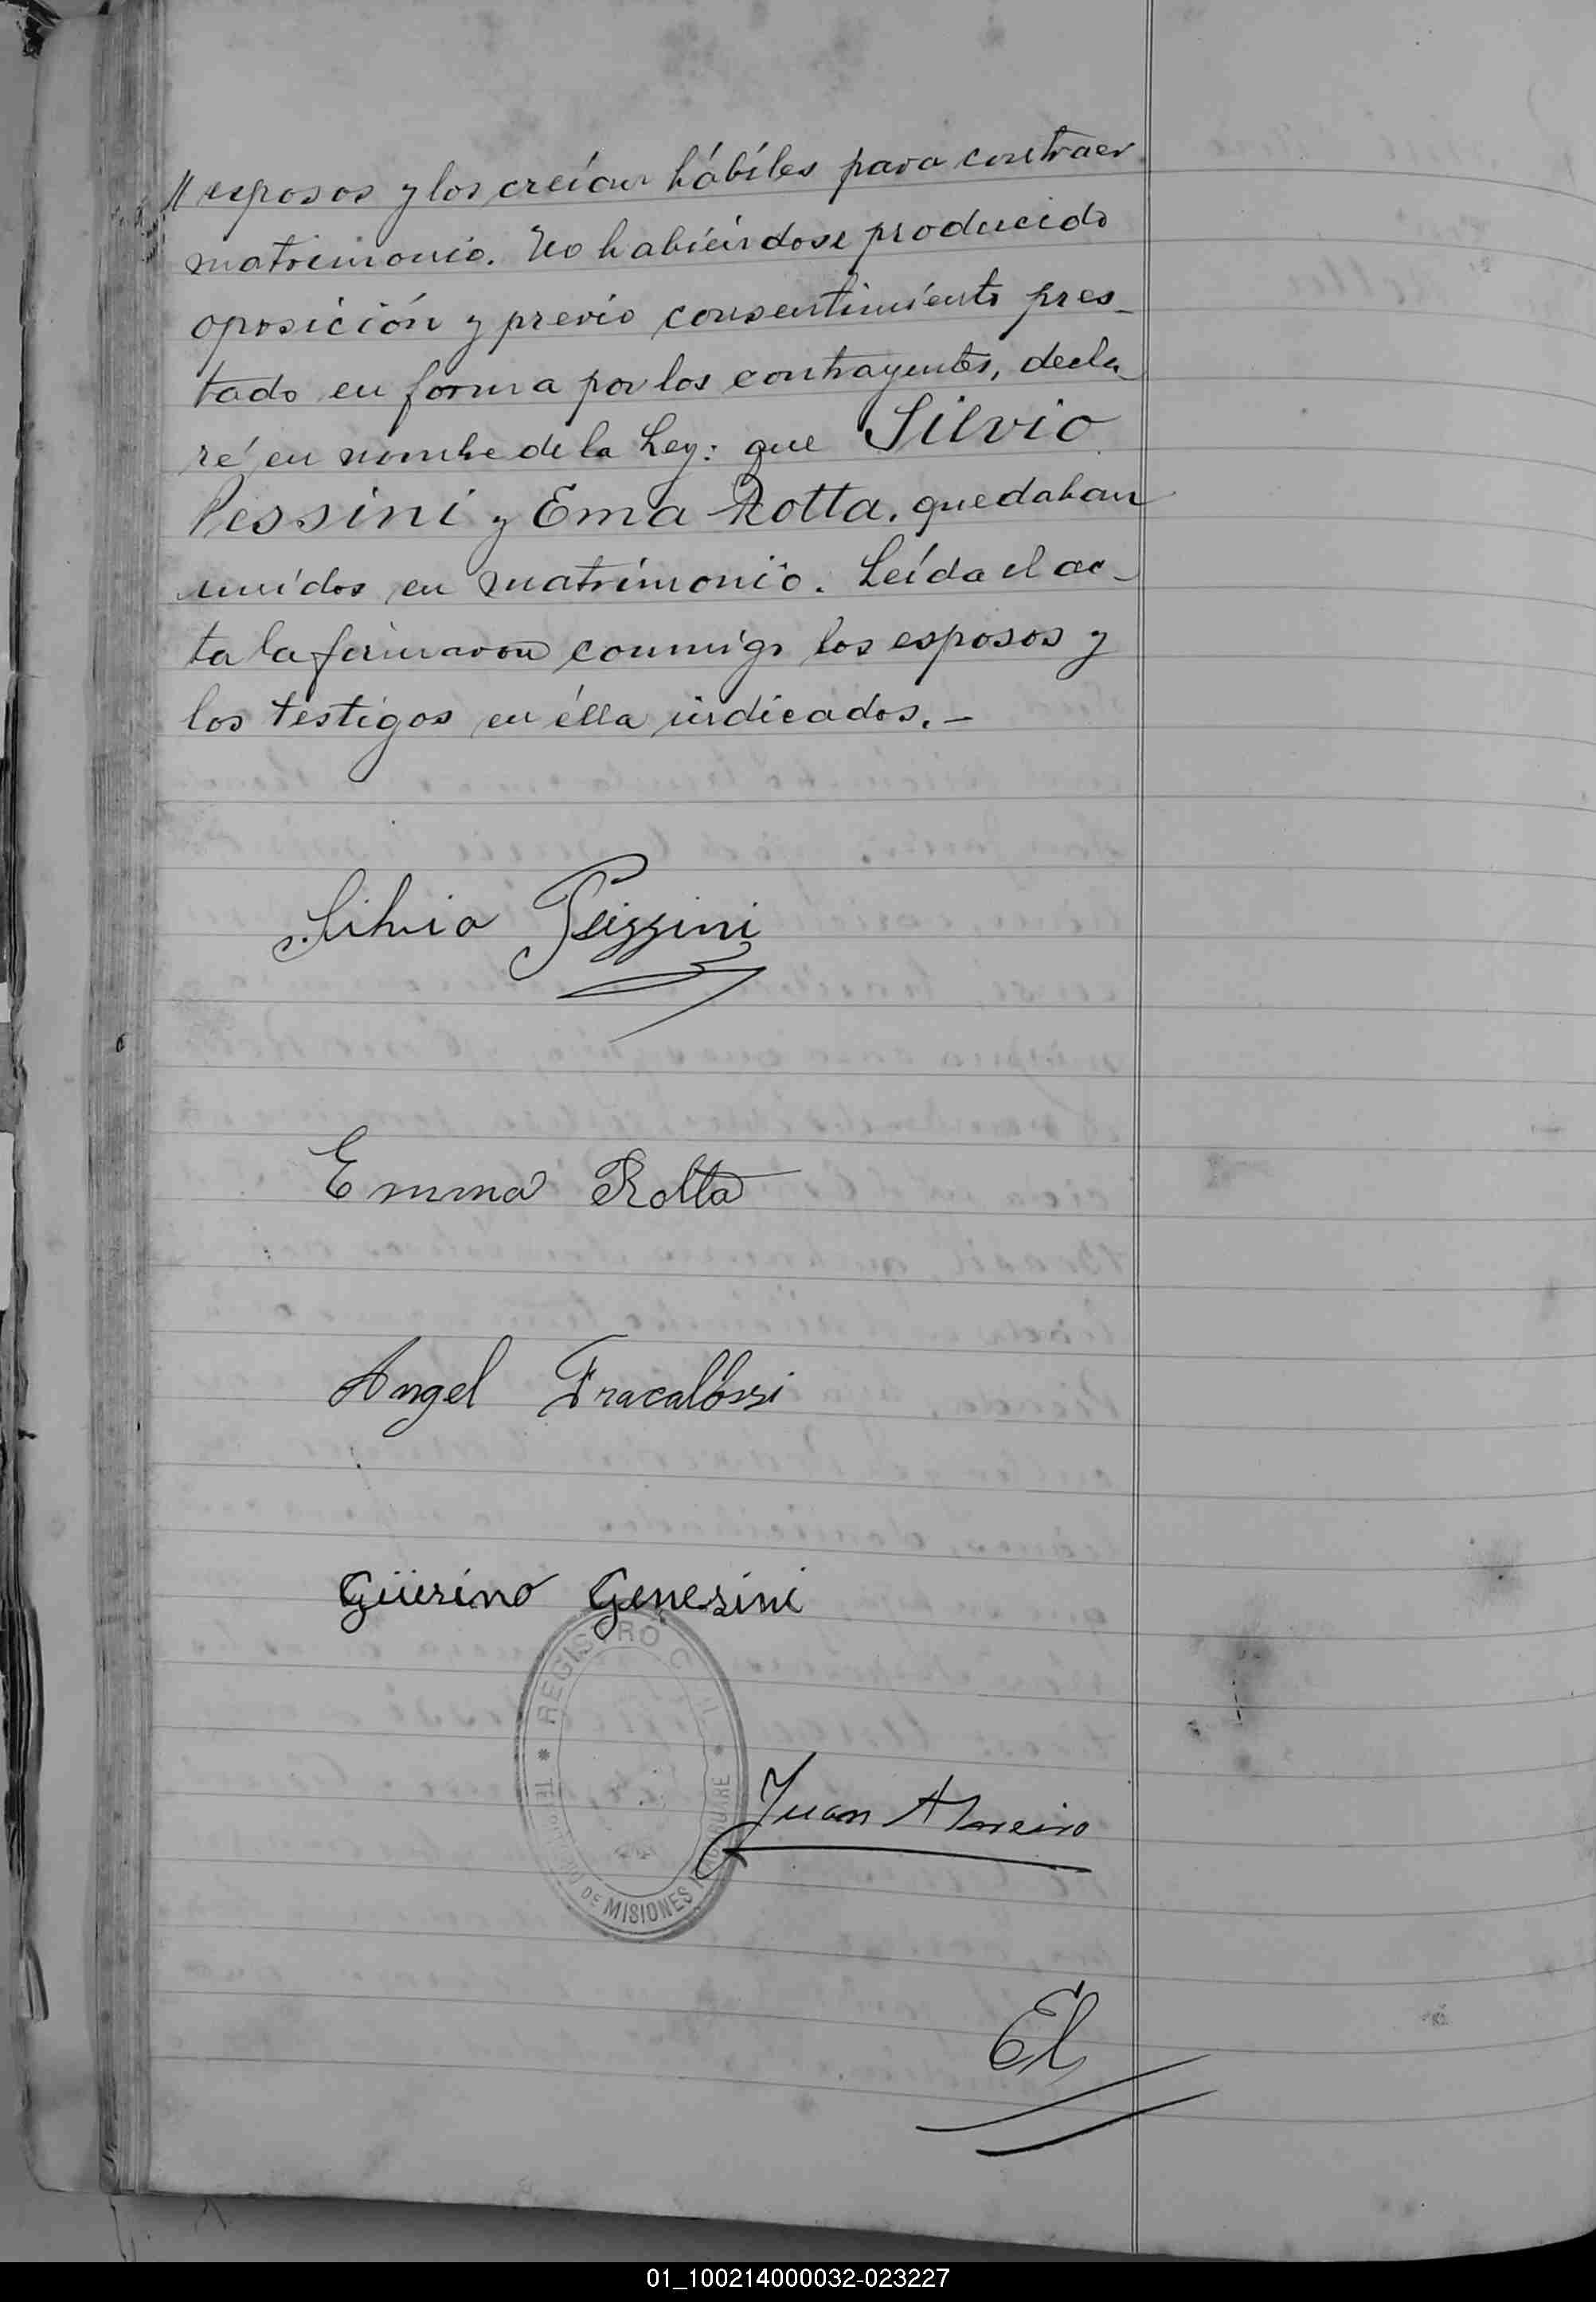 // esposos y los creían hábiles para contraer
matrimonio. No habiéndose producido
oposición y previo consentimiento pres_
tado en forma por los contrayentes, decla_
ré en nombre de la Ley: que Silvio
Pessini y Ema Rotta. quedaban
unidos en matrimonio. Leída el ac_
ta la firmaron conmigo los esposos y
los testigos en élla indicados. _
Silvio Peissini
Emma Rotta
Angel Fracalossi
Güerino Genesini
REGISTRO CIVIL
DE MISIONES
Juan
El
01_100214000032-023227